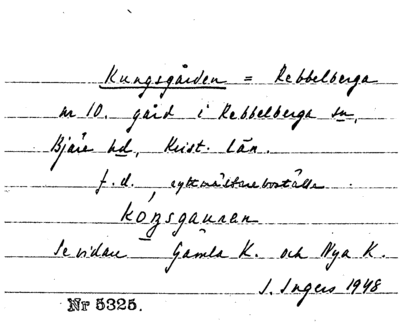 Kungsgården = Rebbelberga
nr 10. gård i Rebbelberga sn,
Bjäre hd, Krist. län.
f.d. ryttmästareboställe.
Se vidare Gamla K. och Nya K.
I. Ingers 1948
Nr 5325.